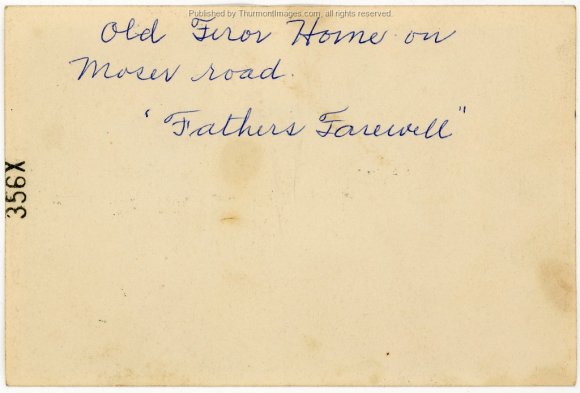 Published by ThurmontImages.com, all rights reserved.
Old Firor Home on
Moser road.
"Fathers Farewell"
356X